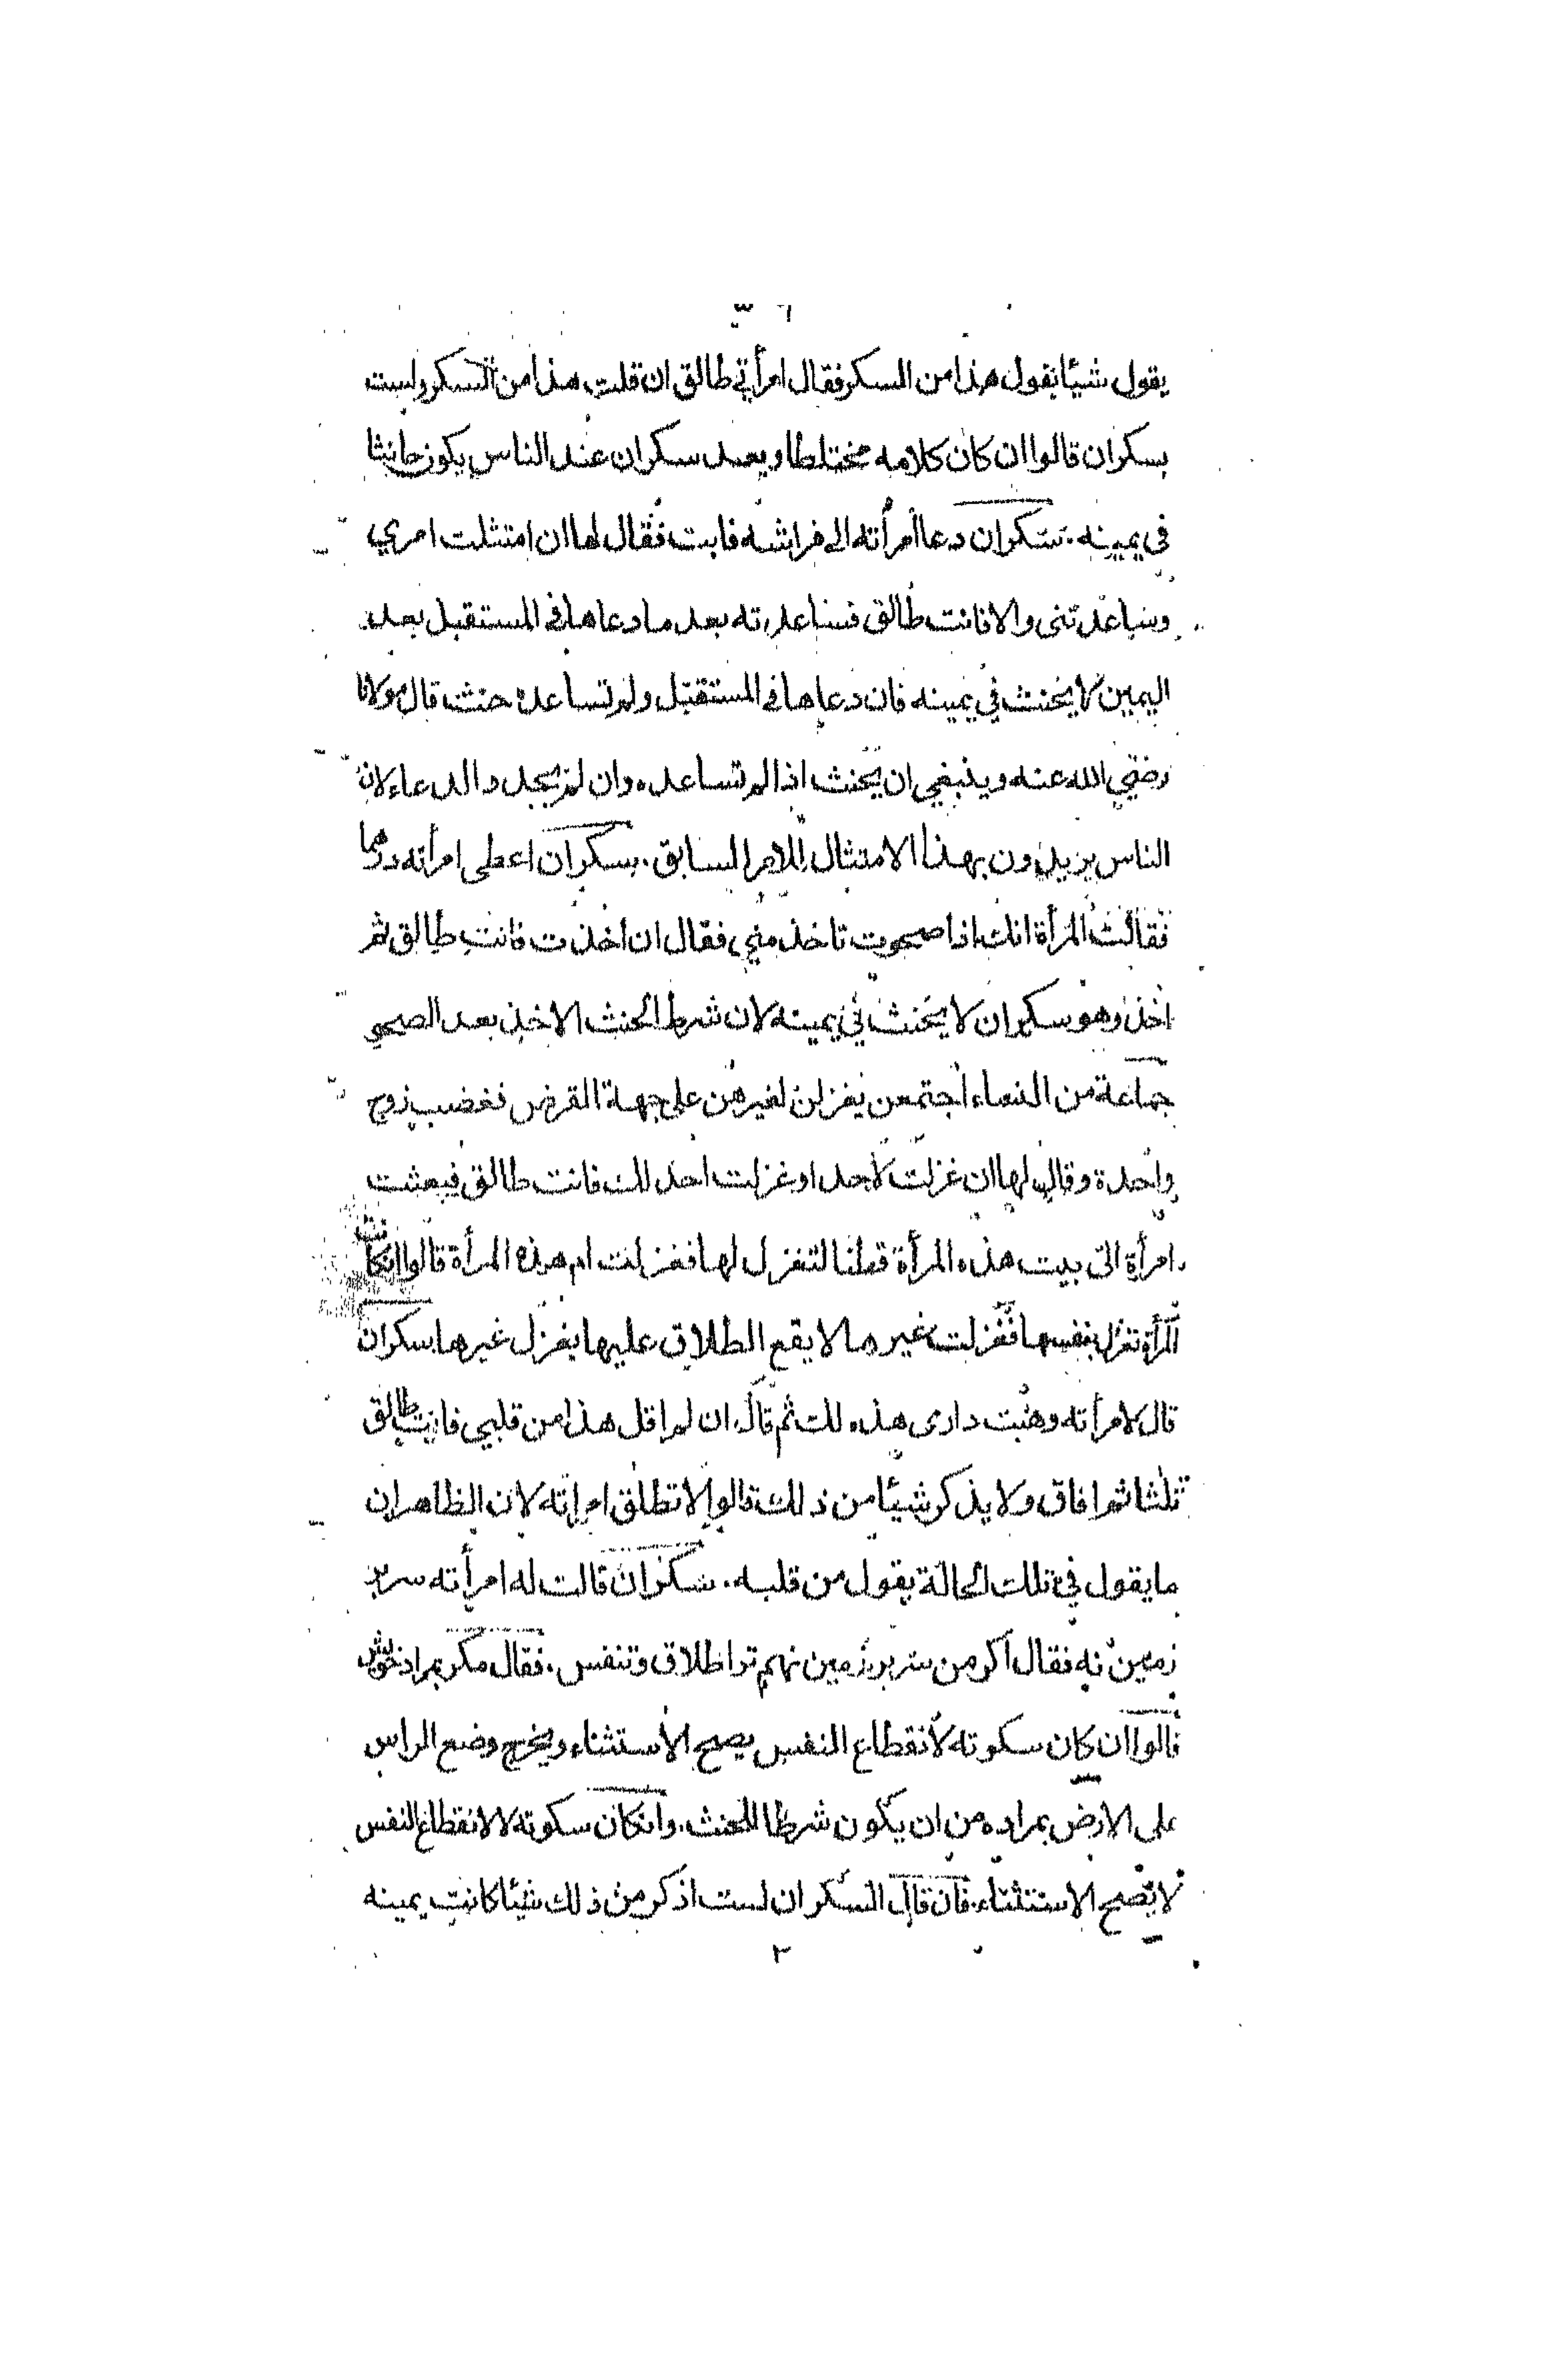 يقول شيئا يقول هذا من السكر فقال امرأتي طالق ان قلت هذا من السكر ولست
بسكران قالوا ان كان كلامه مختلطا ويعد سكران عند الناس يكون حانثا
في يمينه . سكران دعا امرأته الى فراشه فابت فقال لها ان امتثلت امري
وساعدتني والا فانت طالق فساعدته بعد ما دعاها في المستقبل بعد
اليمين لا يحنث في يمينه فان دعاها في المستقبل ولم تساعده حنث قال مولانا
رضي الله عنه وينبغي ان يحنث اذا لم تساعده وان لم يجدد الدعاء لان
الناس يريدون بهذا الامتثال للامر السابق . سكران اعطى امرأته درهما
فقالت المرأة انك اذا صحوت تاخذ مني فقال ان اخذت فانت طالق ثم
اخذ وهو سكران لا يحنث في يمينه لان شرط الحنث الاخذ بعد الصحو
جماعة من النساء اجتمعن يغزلن لغيرهن على جهة القرض فغضب زوج
واحدة وقال لها ان غزلت لاحد او غزلت احد لك فانت طالق فبعثت
امرأة الى بيت هذه المرأة قطنا لتغزل لها فغزلت ام هذه المرأة قالوا ان كانت
المرأة تغزل بنفسها فغزلت غيرها لا يقع الطلاق عليها بغزل غيرها سكران
قال لامرأته وهبت دارى هذه لك ثم قال ان لم اقل هذا من قلبي فانت طالق
ثلثا ثم افاق ولا يذكر شيئا من ذلك قالوا لا تطلق امرأته لان الظاهر ان
ما يقول في تلك الحالة يقول من قلبه . سكران قالت له امرأته سر بر
زمين نه فقال اكر من سر بر زمين نهم ترا طلاق وتنفس . فقال مكر بمراد خويش
قالوا ان كان سكوته لانقطاع النفس يصح الاستثناء ويخرج وضع الراس
على الارض بمراده من ان يكون شرطا للحنث . وان كان سكوته لا لانقطاع النفس
لا يصح الاستثناء . فان قال السكران لست اذكر من ذلك شيئا كانت يمينه